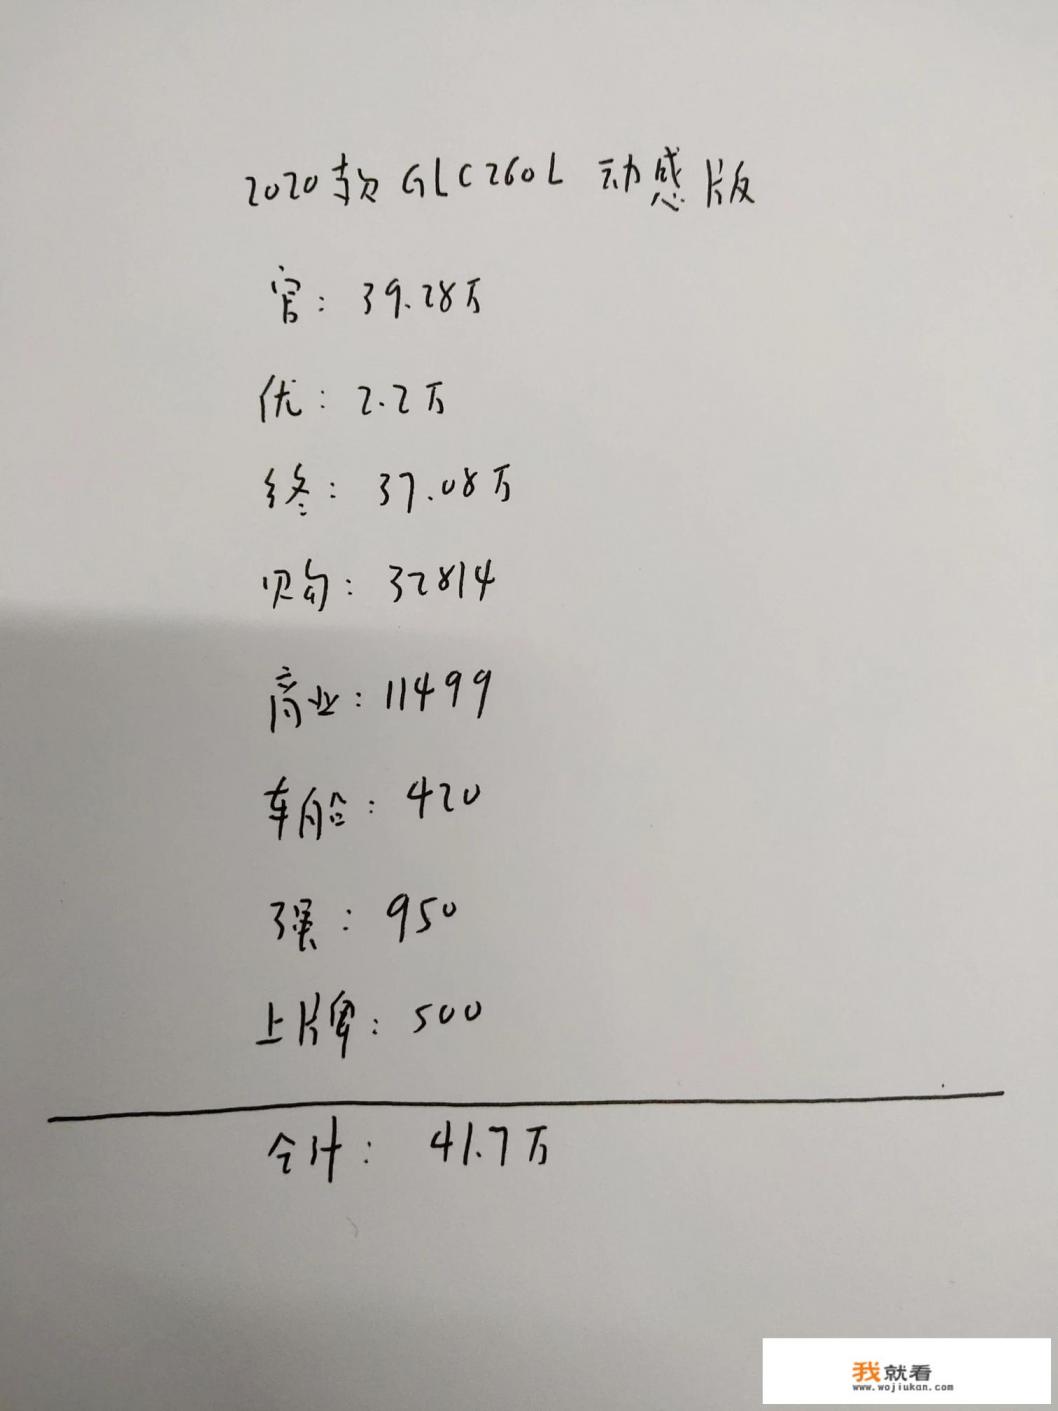 2020款 GLC260L 动感版
官: 39.28万
优: 2.2万
终: 37.08万
购: 32814
商业: 11499
车船: 420
强: 950
上牌: 500
合计: 41.7万
我就看
www.wojiukan.com